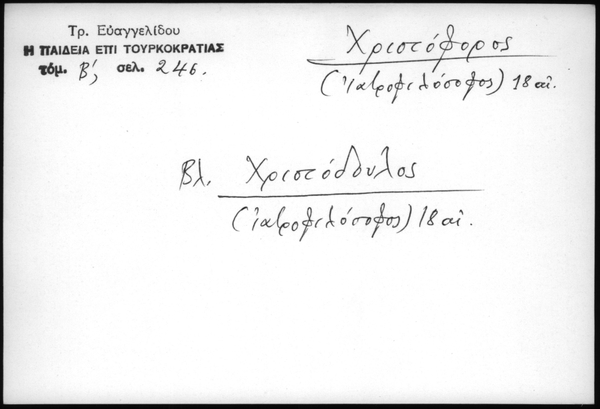 Τρ. Εὐαγγελίδου
Η ΠΑΙΔΕΙΑ ΕΠΙ ΤΟΥΡΚΟΚΡΑΤΙΑΣ
τόμ. Β', σελ. 246.
Χριστόφορος
(Ἰατροφιλόσοφος) 18 αἰ.
Βλ. Χριστόδουλος
(ἰατροφιλόσοφος) 18 αἰ.